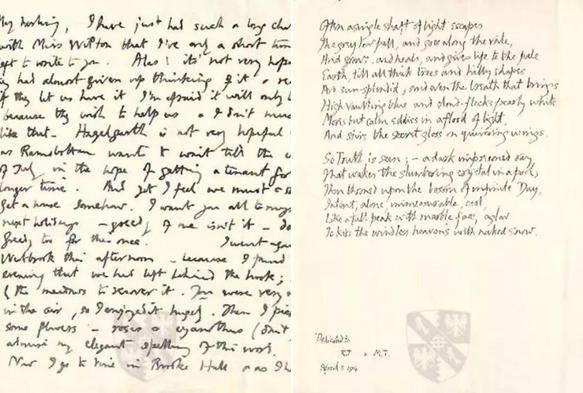 My darling, I have just had such a long cha
with Miss Wilton that I've only a short time
left to write to you. Alas! it's not very hope
had almost given up thinking of it a re
if they let us have it I'm afraid it will only b
because they wish to help us & I don't
like that. is not very hopeful
as want to wait till the
of July in the hope of getting a tenant for
longer time. And yet I feel we must
get a house somehow. I want you all to
next holidays - greedy of me isn't it - do
greedy too for this once. I went again
this afternoon - because I found
evening that we had left behind the book;
(the meadows to recover it. were very
in the air, so I enjoyed it hugely. Then I pic
some flowers - roses & (don't
admire my elegant spelling of this word.
Now I go to dine in Hall & as I h
Often a single shaft of light escapes
The grey low pall, and goes along the vale,
And grows and heals, and gives life to the pale
Earth, till all think trees and hilly shapes
Are sun-splendid, and even the breath that brings
High vaulting blue and cloud-flocks pearly white
Moves but calm eddies in a flood of light.
And stirs the secret gloss on quivering wings.
So Truth is seen; - a dark imprisoned ray
That wakes the slumbering crystal in a pool,
Then throned upon the bosom of infinite Day,
Intent, alone, immeasurable, cool,
Like a tall peak with marble face, aglow
To kiss the windless heavens with naked snow.
Dedicated to
& M.T.
April